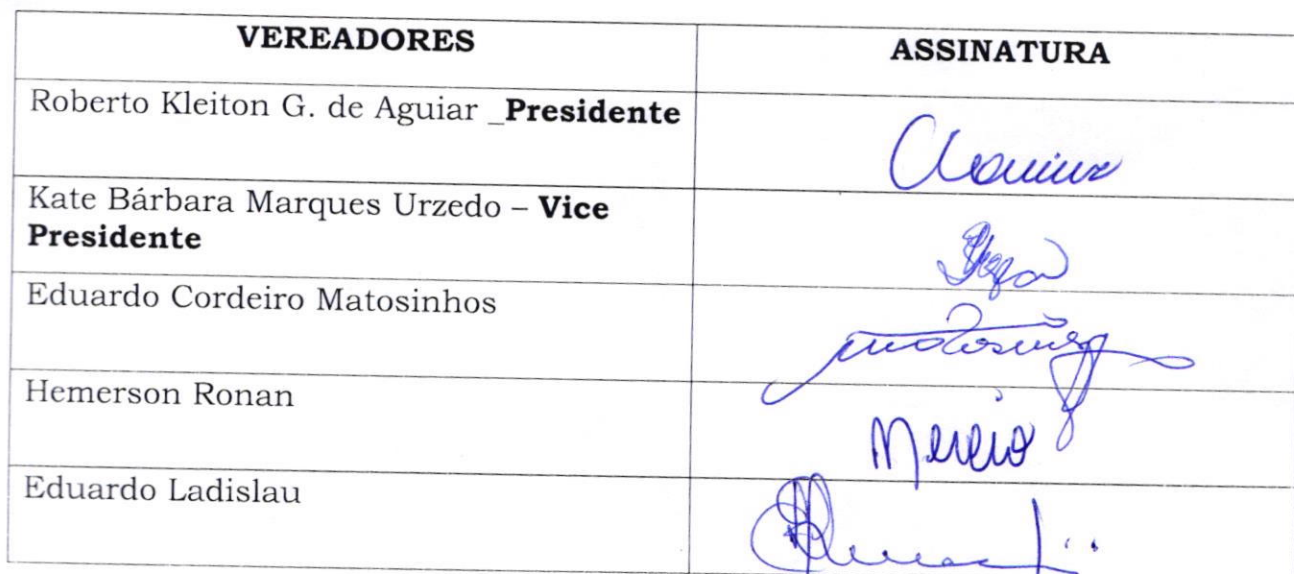 VEREADORES
ASSINATURA
Roberto Kleiton G. de Aguiar _Presidente
Kate Bárbara Marques Urzedo – Vice
Presidente
Eduardo Cordeiro Matosinhos
Hemerson Ronan
Eduardo Ladislau